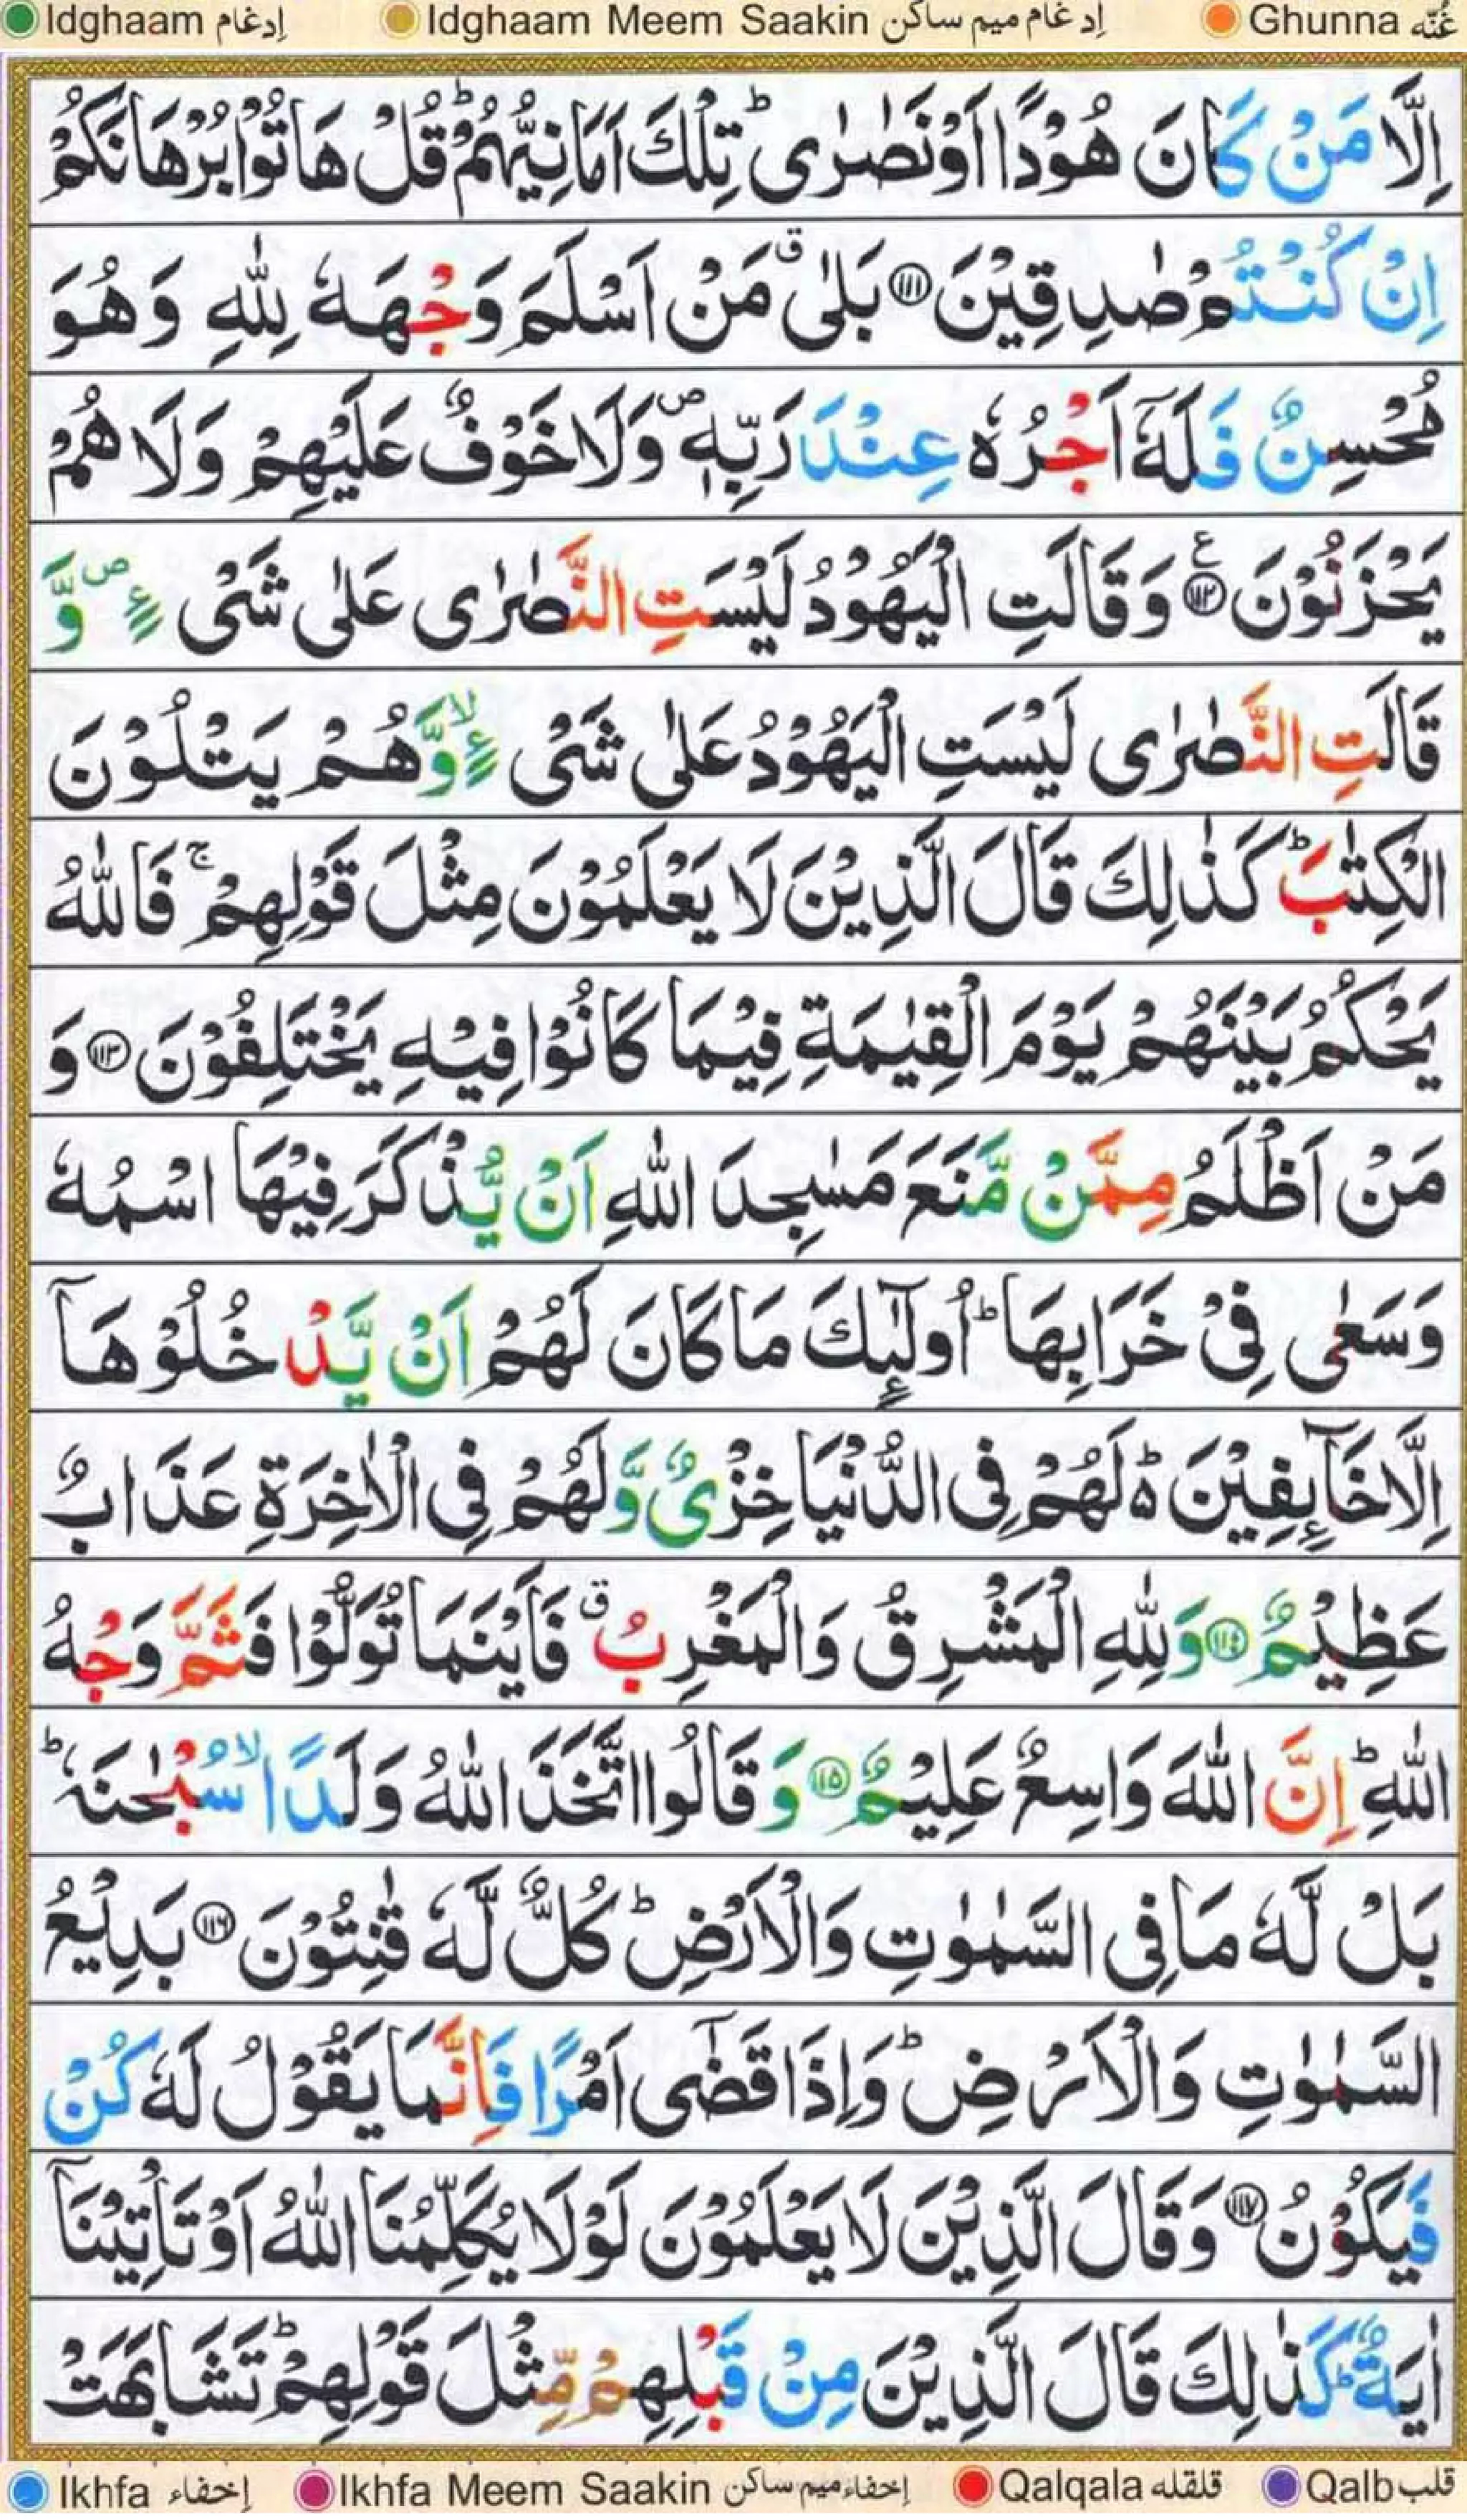 Idghaam إدغام Idghaam Meem Saakin إدغام ميم ساكن Ghunna غُنّه
اِلَّا مَنْ كَانَ هُوْدًا اَوْ نَصٰرٰى ؕ تِلْكَ اَمَانِيُّهُمْ ؕ قُلْ هَاتُوْا بُرْهَانَكُمْ
اِنْ كُنْتُمْ صٰدِقِيْنَ ﴿۱۱۱﴾ بَلٰى ۗ مَنْ اَسْلَمَ وَجْهَهٗ لِلّٰهِ وَهُوَ
مُحْسِنٌ فَلَهٗۤ اَجْرُهٗ عِنْدَ رَبِّهٖ ۪ وَلَا خَوْفٌ عَلَيْهِمْ وَلَا هُمْ
يَحْزَنُوْنَ ﴿۱۱۲﴾ ع وَقَالَتِ الْيَهُوْدُ لَيْسَتِ النَّصٰرٰى عَلٰى شَىْءٍ ۪ وَّ
قَالَتِ النَّصٰرٰى لَيْسَتِ الْيَهُوْدُ عَلٰى شَىْءٍ ۙ وَّهُمْ يَتْلُوْنَ
الْكِتٰبَ ؕ كَذٰلِكَ قَالَ الَّذِيْنَ لَا يَعْلَمُوْنَ مِثْلَ قَوْلِهِمْ ۚ فَاللّٰهُ
يَحْكُمُ بَيْنَهُمْ يَوْمَ الْقِيٰمَةِ فِيْمَا كَانُوْا فِيْهِ يَخْتَلِفُوْنَ ﴿۱۱۳﴾ وَ
مَنْ اَظْلَمُ مِمَّنْ مَّنَعَ مَسٰجِدَ اللّٰهِ اَنْ يُّذْكَرَ فِيْهَا اسْمُهٗ
وَسَعٰى فِىْ خَرَابِهَا ؕ اُولٰٓئِكَ مَا كَانَ لَهُمْ اَنْ يَّدْخُلُوْهَاۤ
اِلَّا خَآئِفِيْنَ ؕ۬ لَهُمْ فِى الدُّنْيَا خِزْىٌ وَّلَهُمْ فِى الْاٰخِرَةِ عَذَابٌ
عَظِيْمٌ ﴿۱۱۴﴾ وَلِلّٰهِ الْمَشْرِقُ وَالْمَغْرِبُ ۗ فَاَيْنَمَا تُوَلُّوْا فَثَمَّ وَجْهُ
اللّٰهِ ؕ اِنَّ اللّٰهَ وَاسِعٌ عَلِيْمٌ ﴿۱۱۵﴾ وَقَالُوا اتَّخَذَ اللّٰهُ وَلَدًا ۙ سُبْحٰنَهٗ ؕ
بَلْ لَّهٗ مَا فِى السَّمٰوٰتِ وَالْاَرْضِ ؕ كُلٌّ لَّهٗ قٰنِتُوْنَ ﴿۱۱۶﴾ بَدِيْعُ
السَّمٰوٰتِ وَالْاَرْضِ ؕ وَاِذَا قَضٰۤى اَمْرًا فَاِنَّمَا يَقُوْلُ لَهٗ كُنْ
فَيَكُوْنُ ﴿۱۱۷﴾ وَقَالَ الَّذِيْنَ لَا يَعْلَمُوْنَ لَوْلَا يُكَلِّمُنَا اللّٰهُ اَوْ تَاْتِيْنَاۤ
اٰيَةٌ ؕ كَذٰلِكَ قَالَ الَّذِيْنَ مِنْ قَبْلِهِمْ مِّثْلَ قَوْلِهِمْ ؕ تَشَابَهَتْ
Ikhfa إخفاء Ikhfa Meem Saakin إخفاء ميم ساكن Qalqala قلقله Qalb قلب